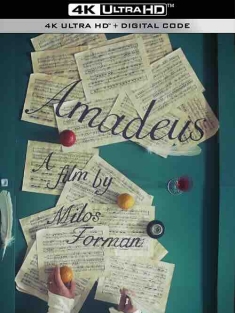 4K ULTRAHD™
4K ULTRA HD™ + DIGITAL CODE
Amadeus
A film by
Milos
Forman